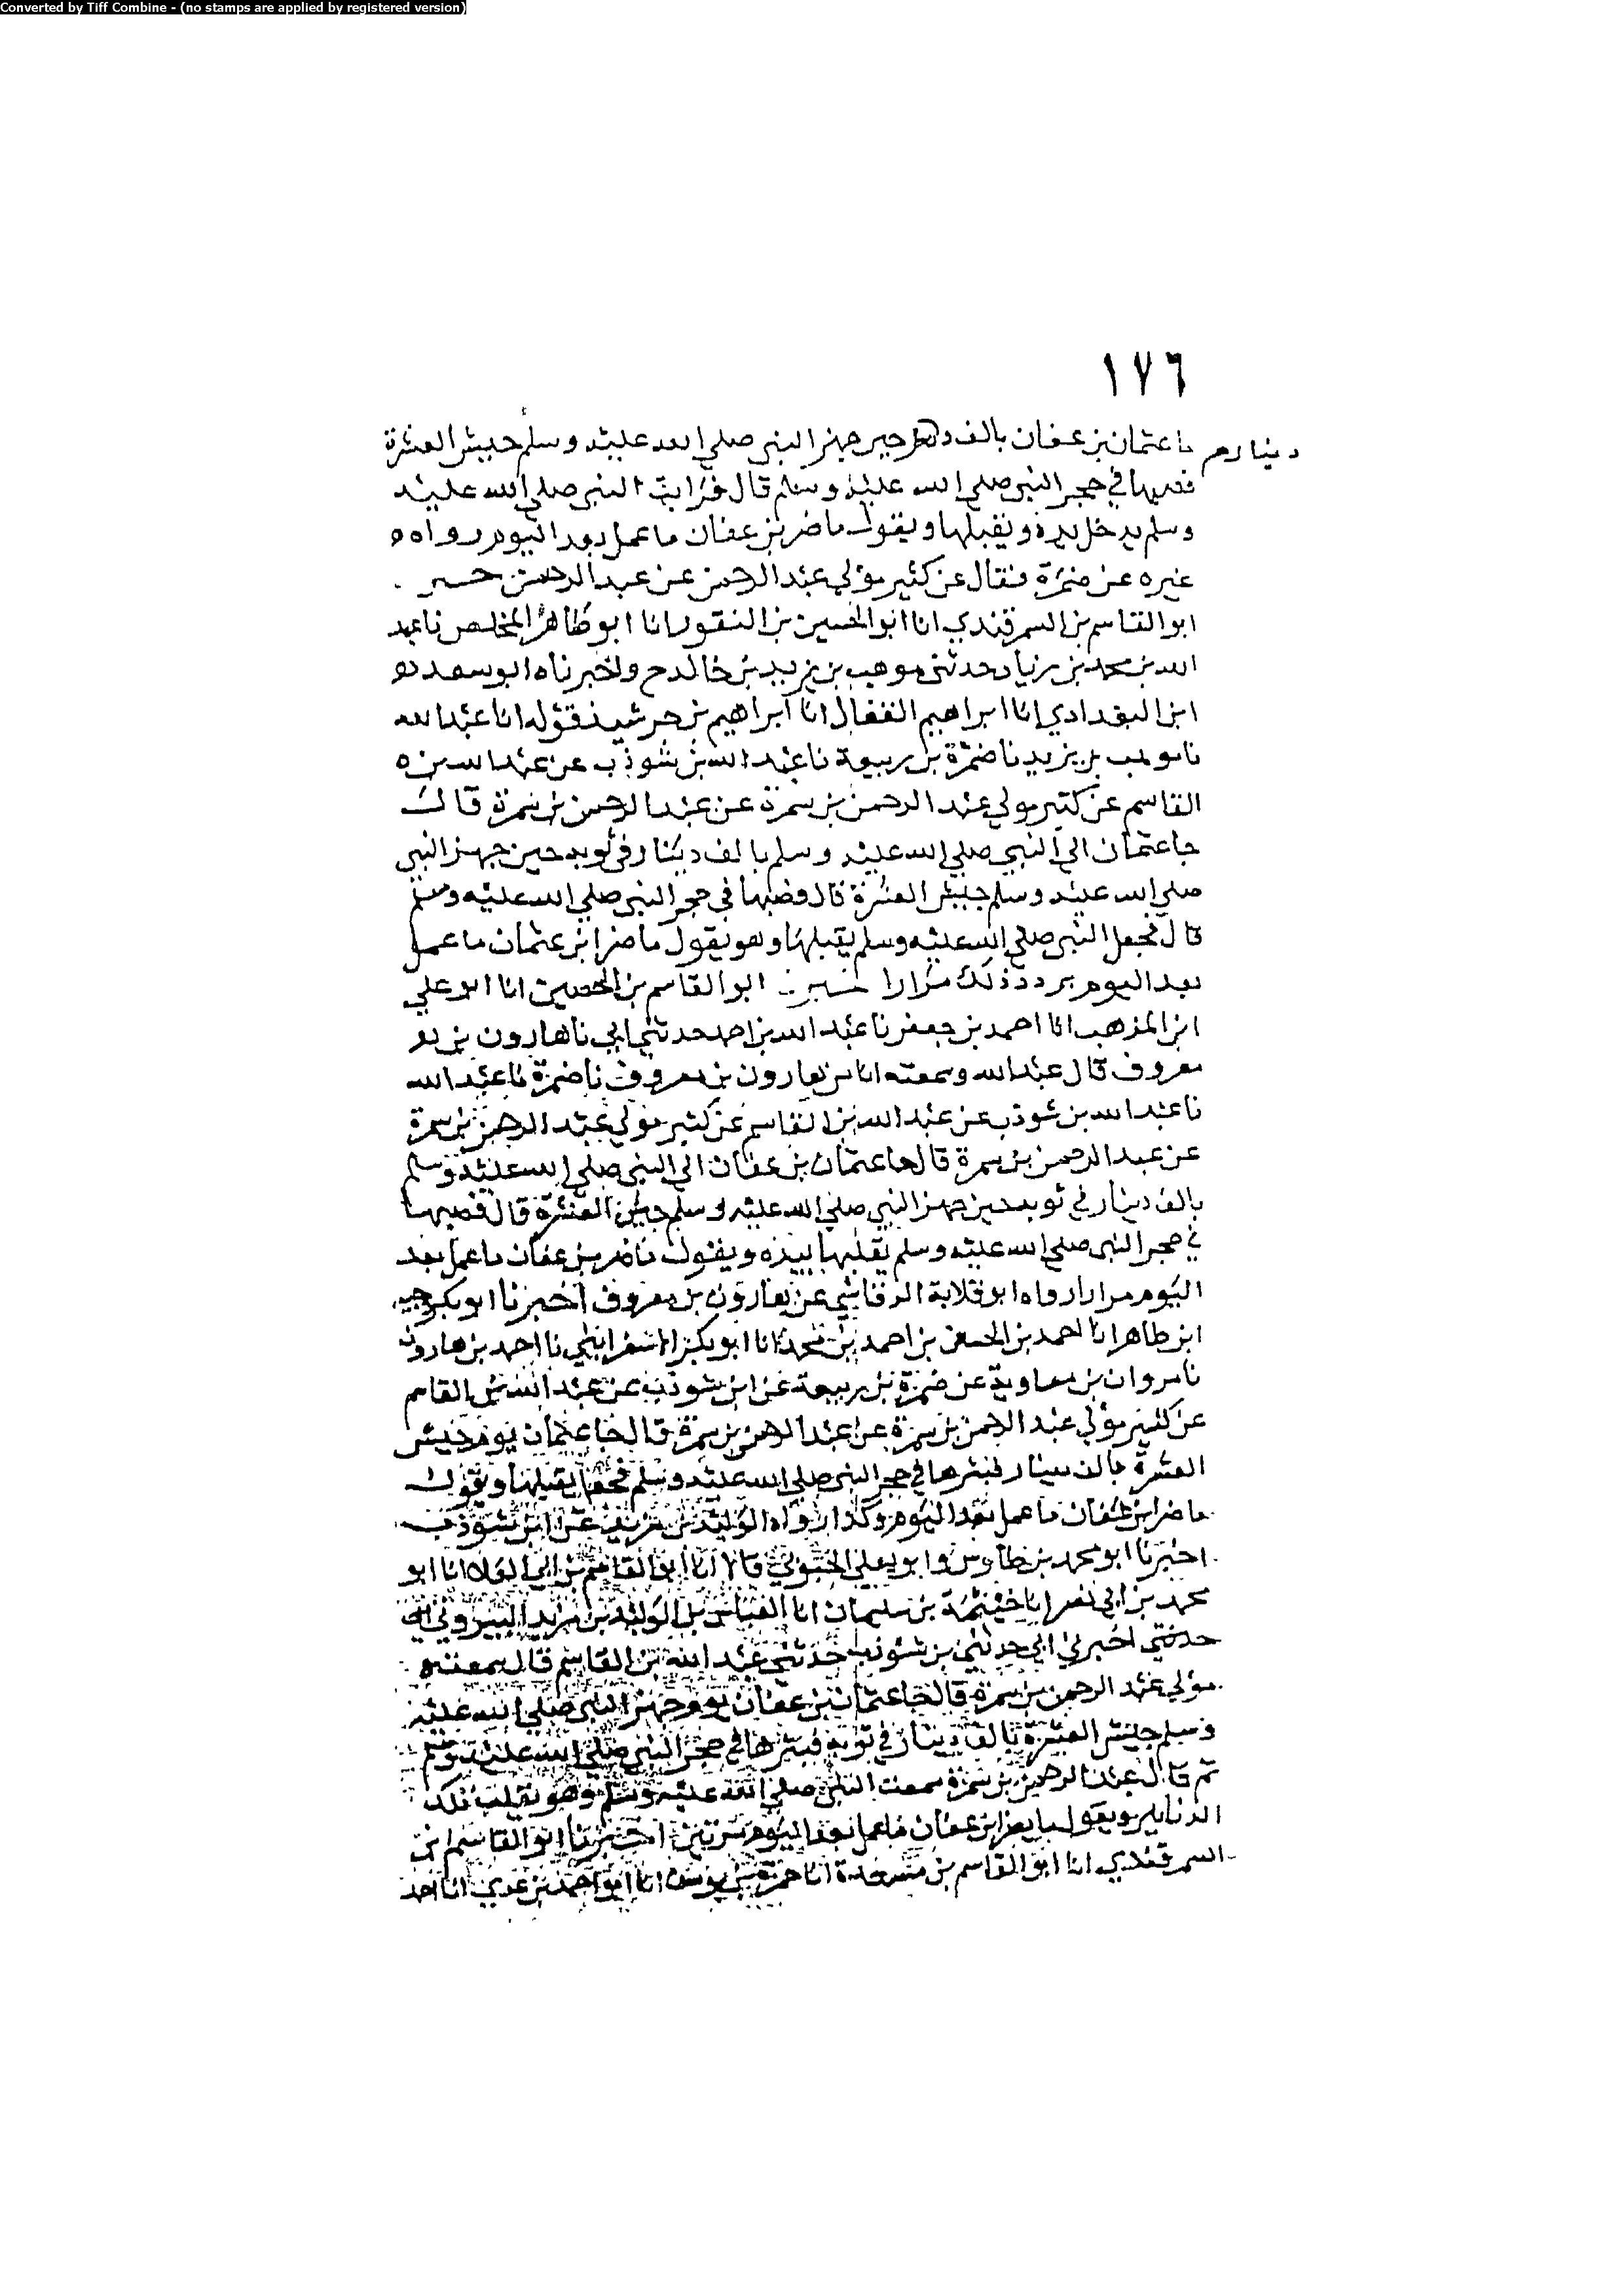 Converted by Tiff Combine - (no stamps are applied by registered version)
١٧٦
دينار
جا عثمان بن عفان بالف حين جهز النبي صلى الله عليه وسلم جيش العسرة
في حجر النبي صلى الله عليه وسلم قال فرايت النبي صلى الله عليه
وسلم يدخل يده ويقبلها ويقول ما ضر بن عفان ما عمل بعد اليوم رواه
غيره عن ضمرة فقال عن كثير مولى عبد الرحمن عن عبد الرحمن
ابو القاسم بن السمرقندي انا ابو الحسين بن النقور انا ابو طاهر المخلص نا عبد
الله بن محمد بن زياد حدثني موهب بن يزيد بن خالد ح واخبرناه ابو سعد
ابن البغدادي انا ابراهيم القفال انا ابراهيم بن خرشيذ قوله انا عبد الله
نا موهب بن يزيد نا ضمرة بن ربيعة نا عبد الله بن شوذب عن عبد الله بن
القاسم عن كثير مولى عبد الرحمن بن سمرة عن عبد الرحمن بن سمرة قال
جا عثمان الى النبي صلى الله عليه وسلم بالف دينار في ثوبه حين جهز النبي
صلى الله عليه وسلم جيش العسرة قال فصبها في حجر النبي صلى الله عليه وسلم
قال فجعل النبي صلى الله عليه وسلم يقبلها وهو يقول ما ضر ابن عثمان ما عمل
بعد اليوم يردد ذلك مرارا ابو القاسم بن الحصين انا ابو علي
ابن المذهب انا احمد بن جعفر نا عبد الله بن احمد حدثني ابي نا هارون بن
معروف قال عبد الله وسمعته انا من هارون بن معروف نا ضمرة نا عبد الله
نا عبد الله بن شوذب عن عبد الله بن القاسم عن كثير مولى عبد الرحمن بن سمرة
عن عبد الرحمن بن سمرة قال جا عثمان بن عفان الى النبي صلى الله عليه وسلم
بالف دينار في ثوبه حين جهز النبي صلى الله عليه وسلم جيش العسرة قال فصبها
في حجر النبي صلى الله عليه وسلم يقلبها بيده ويقول ما ضر بن عفان ما عمل بعد
اليوم مرارا رواه ابو قلابة الرقاشي عن هارون بن معروف اخبرنا ابو بكر وجيه
ابن طاهر انا احمد بن الحسن بن احمد بن محمد انا ابو بكر الاسفرايني نا احمد بن هارون
نا مروان بن معاوية عن ضمرة بن ربيعة عن ابن شوذب عن عبد الله بن القاسم
عن كثير مولى عبد الرحمن بن سمرة عن عبد الرحمن بن سمرة قال جا عثمان يوم جيش
العسرة بالف دينار فنثرها في حجر النبي صلى الله عليه وسلم فجعل يقبلها ويقول
ما ضر ابن عفان ما عمل بعد اليوم وكذا رواه الوليد بن مزيد عن ابن شوذب
اخبرنا ابو محمد بن طاوس وابو يعلى الحبوبي قالا انا ابو القاسم بن ابي العلا انا ابو
محمد بن ابي نصر انا خيثمة بن سليمان انا العباس بن الوليد بن مزيد البيروتي
اخبرني ابي حدثني بن شوذب حدثني عبد الله بن القاسم قال سمعته
مولى عبد الرحمن بن سمرة قال جا عثمان بن عفان يوم جهز النبي صلى الله عليه
وسلم جيش العسرة بالف دينار في ثوبه فنثرها في حجر النبي صلى الله عليه وسلم
ثم قال عبد الرحمن بن سمرة سمعت النبي صلى الله عليه وسلم وهو يقلب تلك
الدنانير ويقول ما يضر ابن عفان ما عمل بعد اليوم مرتين اخبرنا ابو القاسم ابن
السمرقندي انا ابو القاسم بن مسعدة انا حمزة بن يوسف انا ابو احمد بن عدي انا احمد